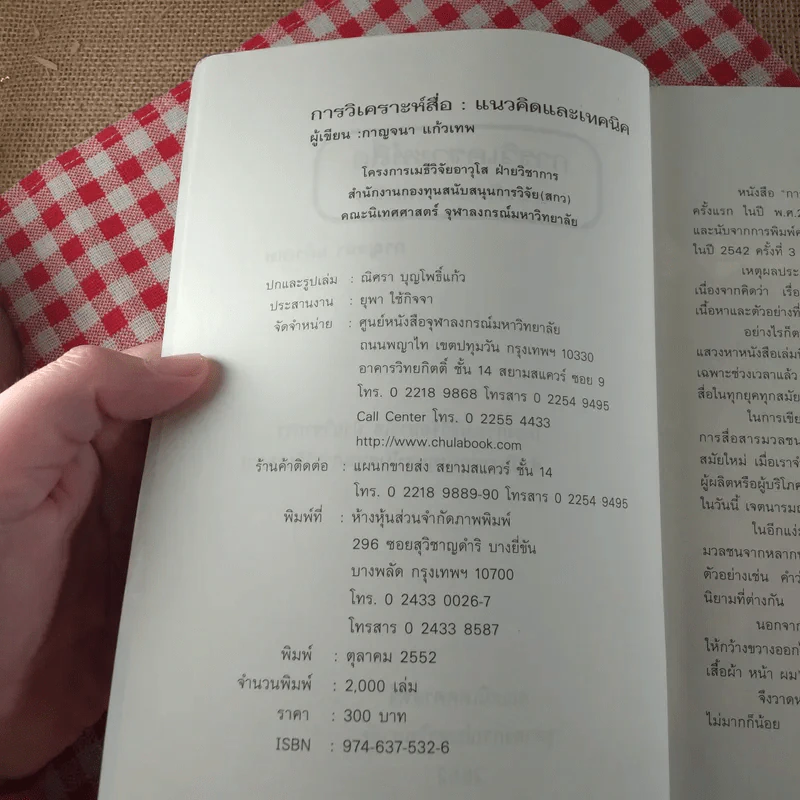 การวิเคราะห์สื่อ : แนวคิดและเทคนิค
ผู้เขียน :กาญจนา แก้วเทพ
โครงการเมธีวิจัยอาวุโส ฝ่ายวิชาการ
สำนักงานกองทุนสนับสนุนการวิจัย(สกว)
คณะนิเทศศาสตร์ จุฬาลงกรณ์มหาวิทยาลัย
ปกและรูปเล่ม : ณิศรา บุญโพธิ์แก้ว
ประสานงาน : ยุพา ใช้กิจจา
จัดจำหน่าย : ศูนย์หนังสือจุฬาลงกรณ์มหาวิทยาลัย
ถนนพญาไท เขตปทุมวัน กรุงเทพฯ 10330
อาคารวิทยกิตติ์ ชั้น 14 สยามสแควร์ ซอย 9
โทร. 0 2218 9868 โทรสาร 0 2254 9495
Call Center โทร. 0 2255 4433
http://www.chulabook.com
ร้านค้าติดต่อ : แผนกขายส่ง สยามสแควร์ ชั้น 14
โทร. 0 2218 9889-90 โทรสาร 0 2254 9495
พิมพ์ที่ : ห้างหุ้นส่วนจำกัดภาพพิมพ์
296 ซอยสุวิชาญดำริ บางยี่ขัน
บางพลัด กรุงเทพฯ 10700
โทร. 0 2433 0026-7
โทรสาร 0 2433 8587
พิมพ์ : ตุลาคม 2552
จำนวนพิมพ์ : 2,000 เล่ม
ราคา : 300 บาท
ISBN : 974-637-532-6
หนังสือ
ครั้งแรก ในปี
และนับจากการพิมพ์
ในปี 2542 ครั้งที่ 3
เหตุผลประ
เนื่องจากคิดว่า เรื่อ
เนื้อหาและตัวอย่างที่
อย่างไรก็ต
แสวงหาหนังสือเล่ม
เฉพาะช่วงเวลาแล้ว
สื่อในทุกยุคทุกสมัย
ในการเขีย
การสื่อสารมวลช
สมัยใหม่ เมื่อเรา
ผู้ผลิตหรือผู้บริโภค
ในวันนี้
ในอีกแง่
มวลชนจากหลาก
ตัวอย่างเช่น
นิยามที่ต่างกัน
นอกจาก
ให้กว้างขวางออก
เสื้อผ้า หน้า ผม
จึงวาด
ไม่มากก็น้อย